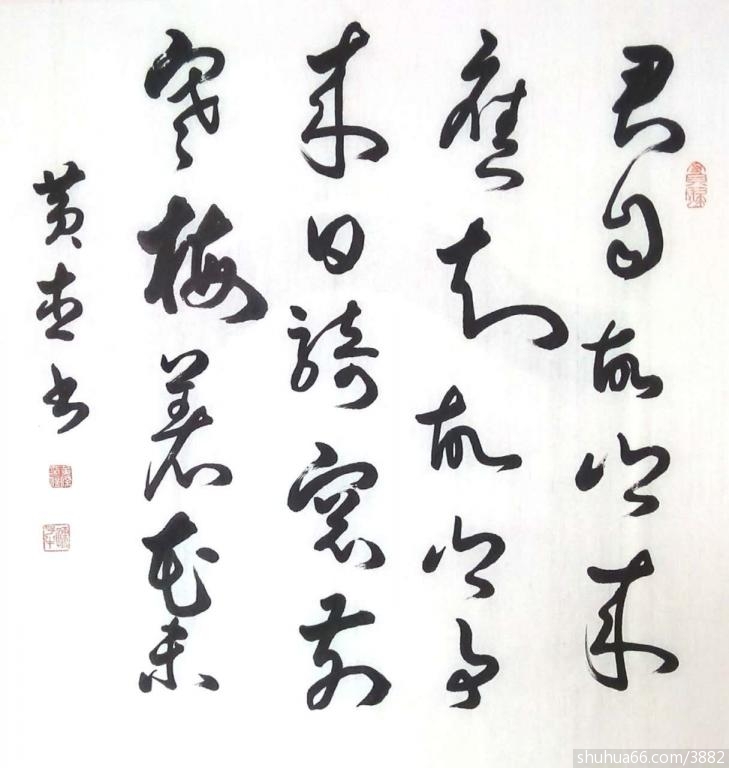 君自故鄉来
應知故鄉事
来日綺窗前
寒梅著花未
黄書
shuhua66.com/3882